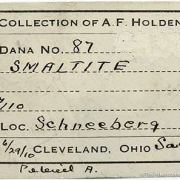 COLLECTION OF A.F. HOLDEN
DANA NO. 87
SMALTITE
/10
LOC. Schneeberg
6/29/10 CLEVELAND, OHIO Sax